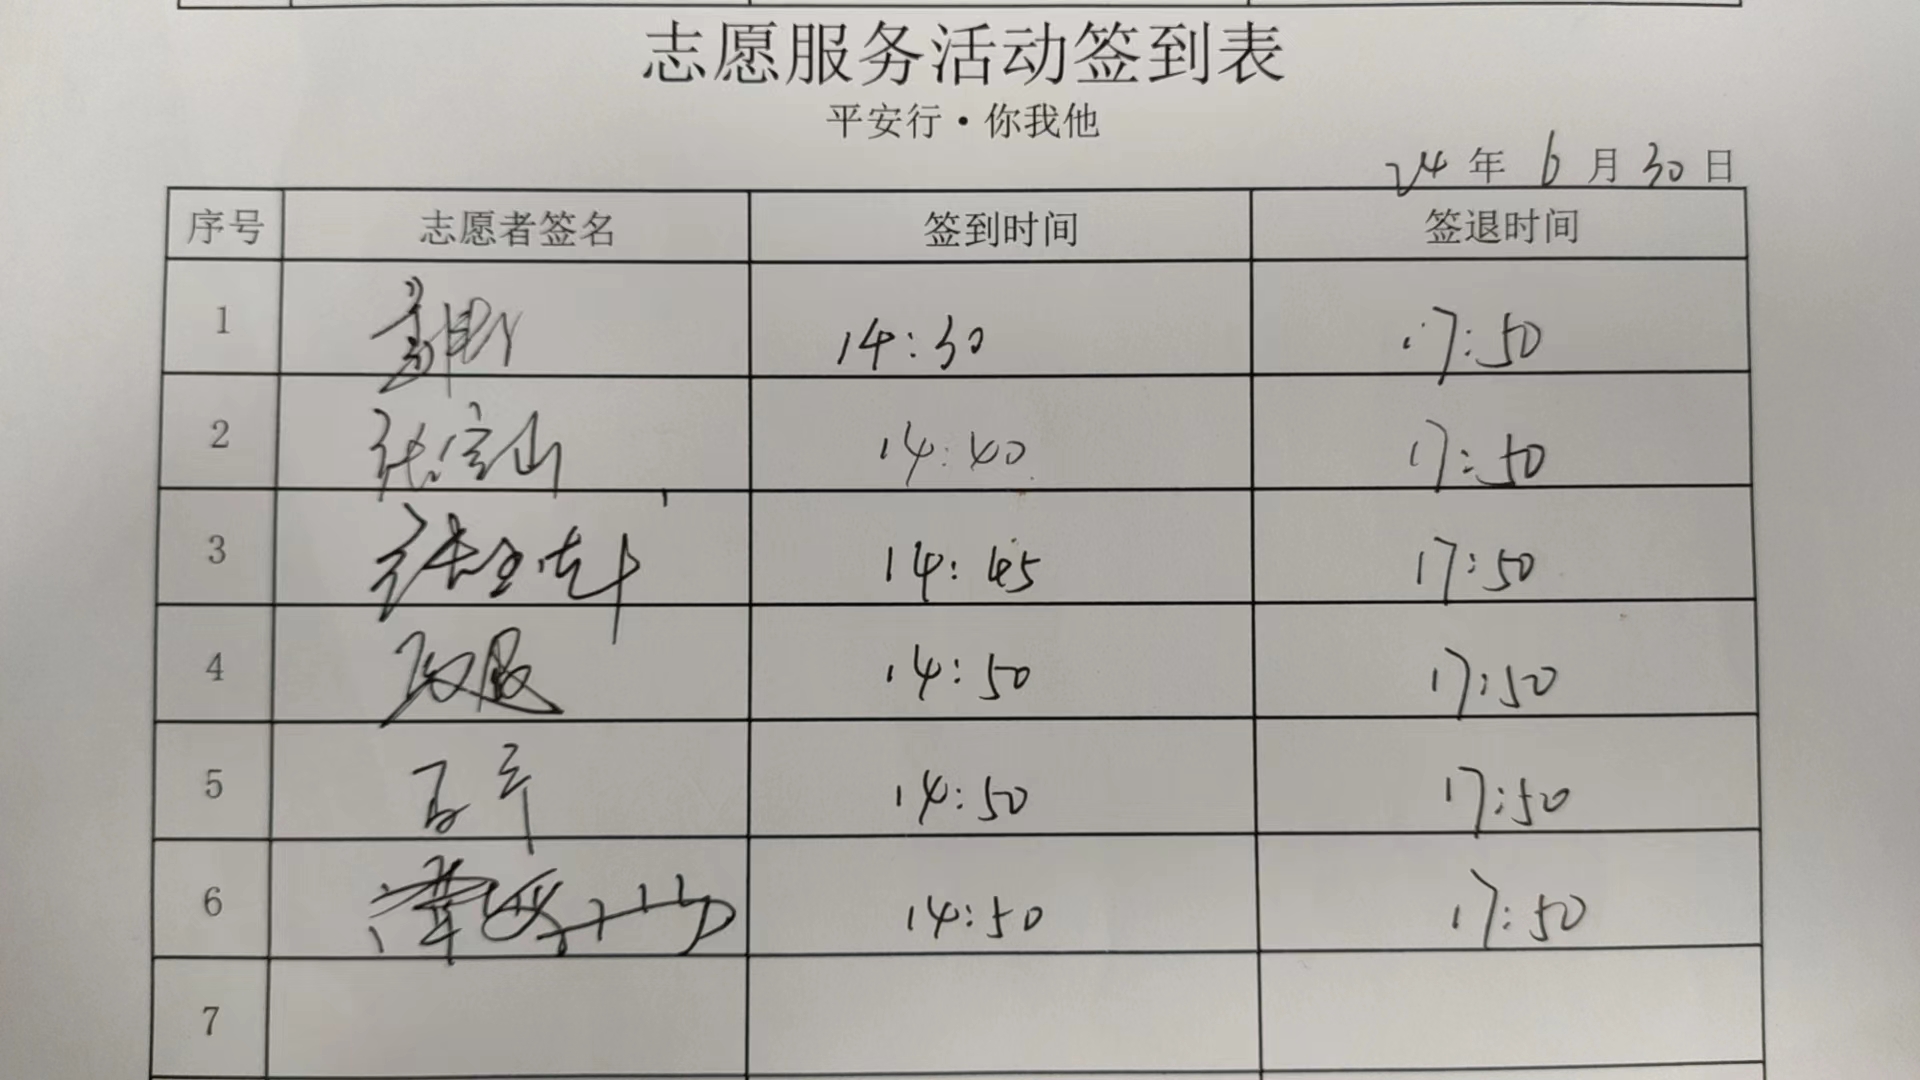 志愿服务活动签到表
平安行·你我他
24 年 6 月 30 日
序号 志愿者签名 签到时间 签退时间
1 14:30 17:50
2 张宝山 14:40 17:50
3 14:45 17:50
4 14:50 17:50
5 14:50 17:50
6 14:50 17:50
7